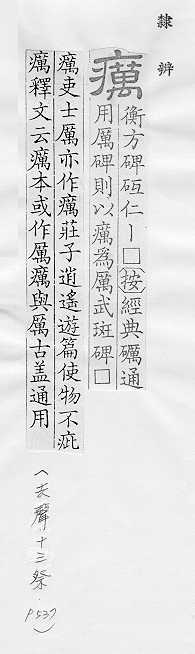 隸辨
癘 衡方碑砥仁ー□(按)經典礪通
用厲碑則以癘為厲武斑碑□
癘吏士厲亦作癘莊子逍遙遊篇使物不疵
癘釋文云癘本或作厲癘與厲古盖通用
(去聲.十三祭.
P537)